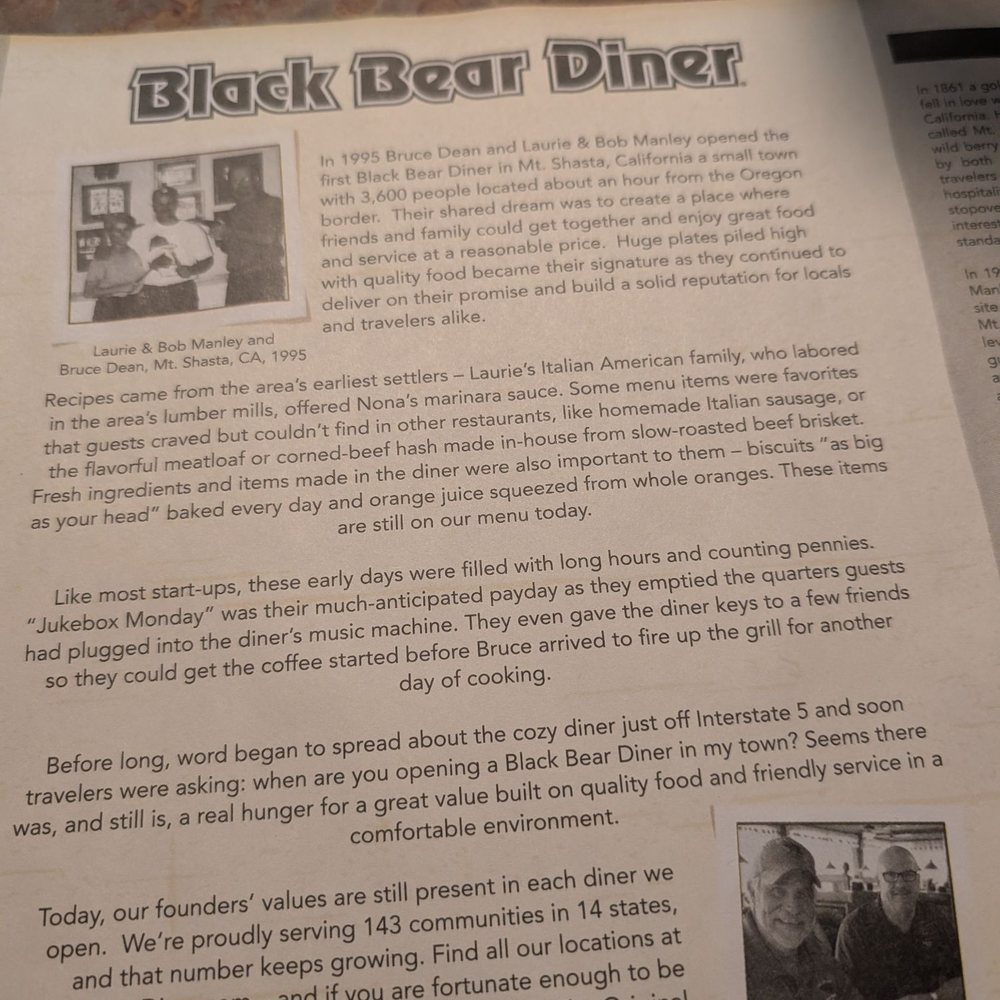 Black Bear Diner
In 1995 Bruce Dean and Laurie & Bob Manley opened the
first Black Bear Diner in Mt. Shasta, California a small town
with 3,600 people located about an hour from the Oregon
border. Their shared dream was to create a place where
friends and family could get together and enjoy great food
and service at a reasonable price. Huge plates piled high
with quality food became their signature as they continued to
deliver on their promise and build a solid reputation for locals
and travelers alike.
Laurie & Bob Manley and
Bruce Dean, Mt. Shasta, CA, 1995
Recipes came from the area's earliest settlers – Laurie's Italian American family, who labored
in the area's lumber mills, offered Nona's marinara sauce. Some menu items were favorites
that guests craved but couldn't find in other restaurants, like homemade Italian sausage, or
the flavorful meatloaf or corned-beef hash made in-house from slow-roasted beef brisket.
Fresh ingredients and items made in the diner were also important to them – biscuits "as big
as your head" baked every day and orange juice squeezed from whole oranges. These items
are still on our menu today.
Like most start-ups, these early days were filled with long hours and counting pennies.
"Jukebox Monday" was their much-anticipated payday as they emptied the quarters guests
had plugged into the diner's music machine. They even gave the diner keys to a few friends
so they could get the coffee started before Bruce arrived to fire up the grill for another
day of cooking.
Before long, word began to spread about the cozy diner just off Interstate 5 and soon
travelers were asking: when are you opening a Black Bear Diner in my town? Seems there
was, and still is, a real hunger for a great value built on quality food and friendly service in a
comfortable environment.
Today, our founders' values are still present in each diner we
open. We're proudly serving 143 communities in 14 states,
and that number keeps growing. Find all our locations at
and if you are fortunate enough to be
Original
In 1861 a
fell in love
California.
called Mt.
wild berry
by both
travelers
stopove
interest
standa
In 19
Man
site
Mt.